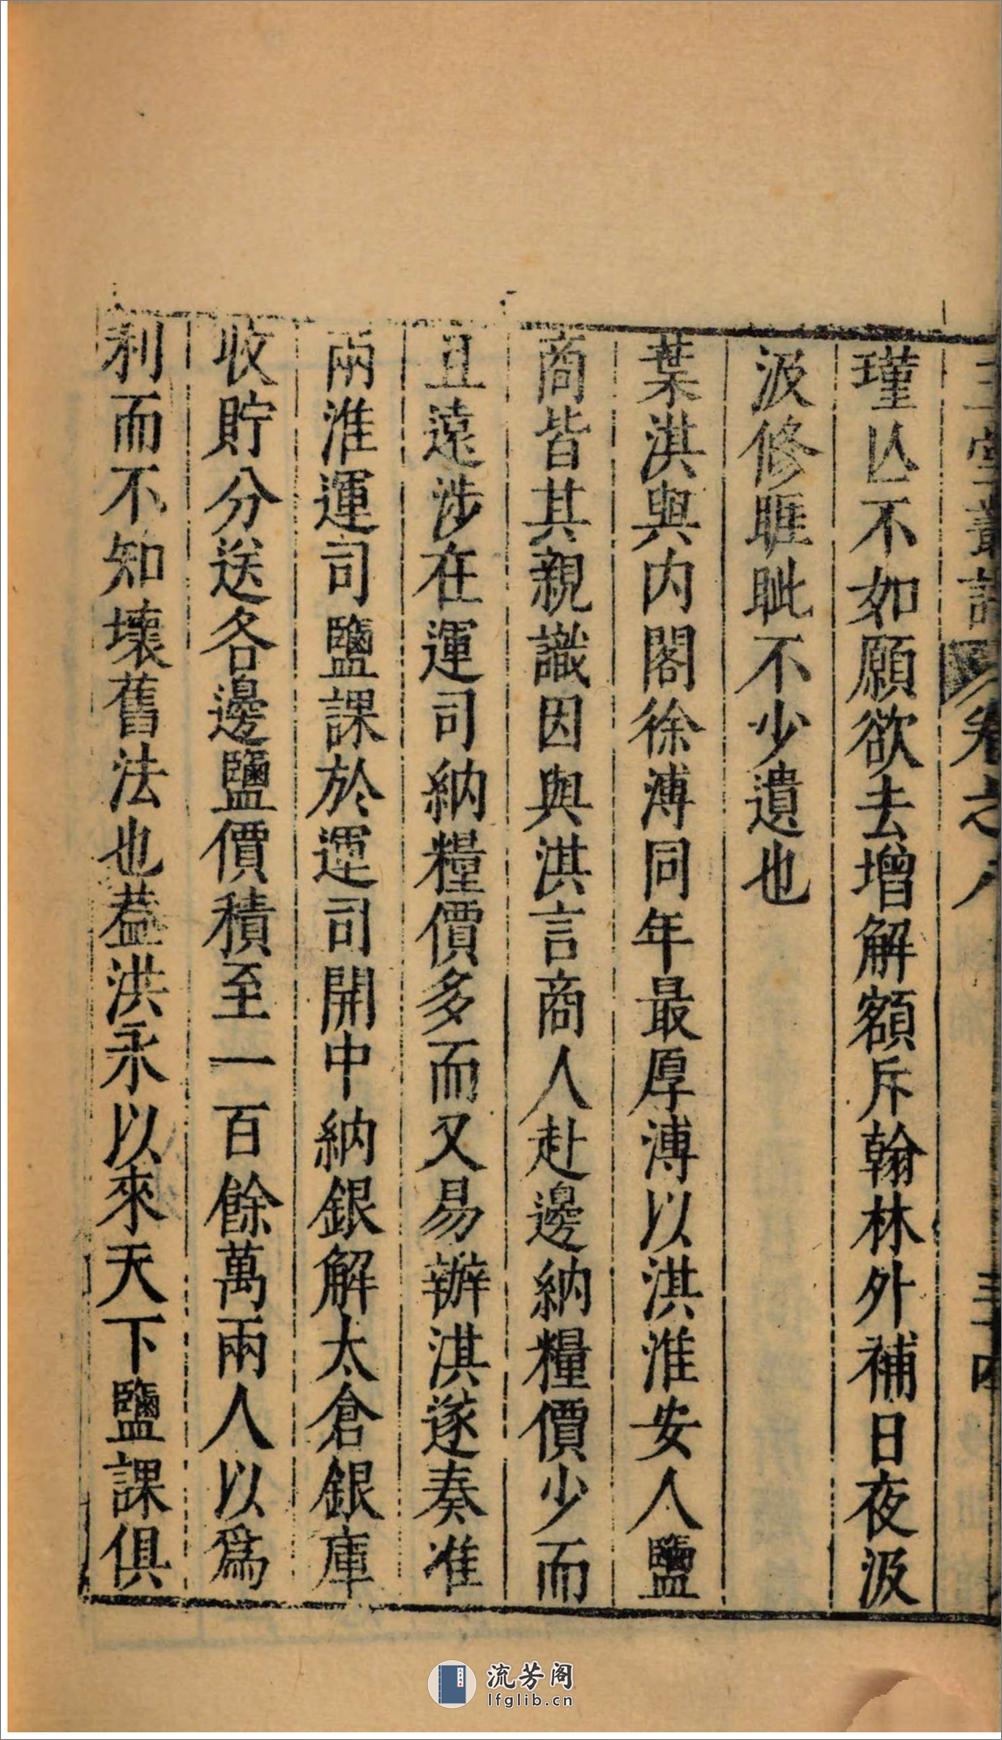 玉堂叢語 卷之八 三十四
瑾亾不如願欲去增解額斥翰林外補日夜汲
汲修睚眦不少遺也
葉淇與内閣徐溥同年最厚溥以淇淮安人鹽
商皆其親識因與淇言商人赴邊納糧價少而
且遠涉在運司納糧價多而又易辦淇遂奏准
兩淮運司鹽課於運司開中納銀解太倉銀庫
收貯分送各邊鹽價積至一百餘萬兩人以爲
利而不知壞舊法也葢洪永以來天下鹽課俱
流芳阁
lfglib.cn